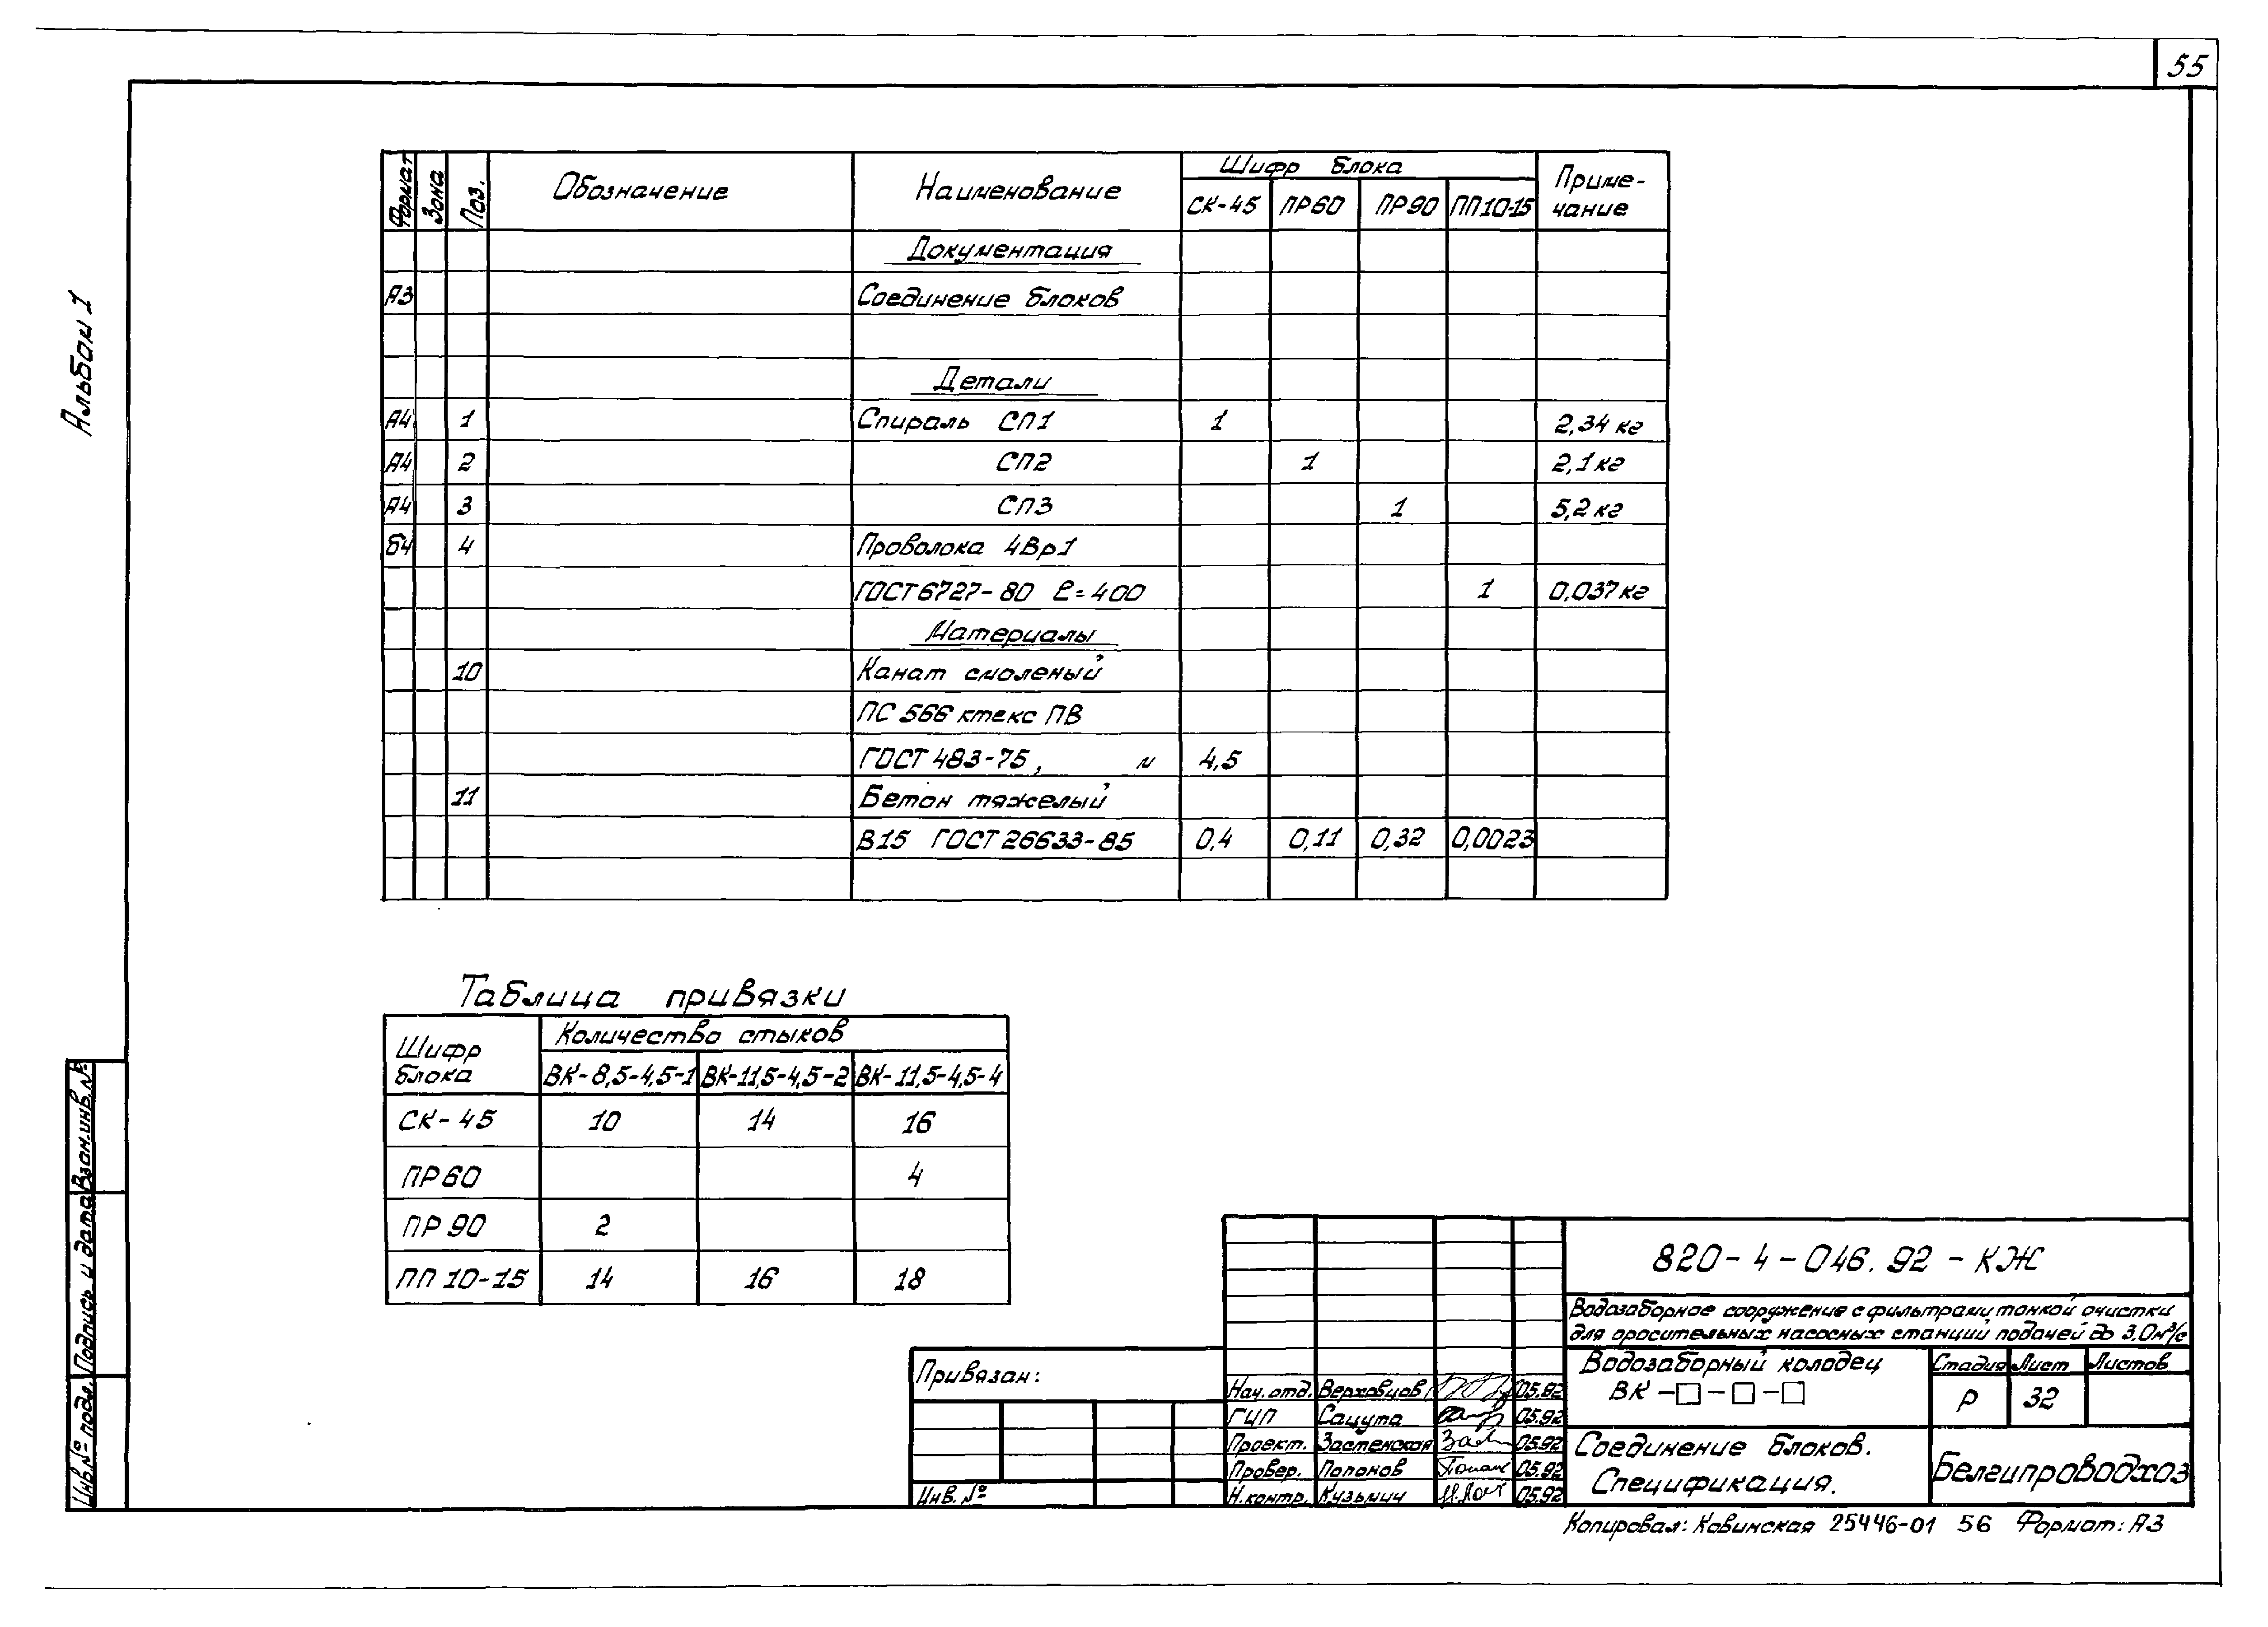 55
Альбом 1
Формат Зона Поз. Обозначение Наименование Шифр блока Приме-
чание
СК-45 ПР60 ПР90 ПП10-15
Документация
А3 Соединение блоков
Детали
А4 1 Спираль СП1 1 2,34 кг
А4 2 СП2 1 2,1 кг
А4 3 СП3 1 5,2 кг
Б4 4 Проволока 4Вр1
ГОСТ 6727-80 ℓ=400 1 0,037 кг
Материалы
10 Канат смоленый
ПС 566 ктекс ПВ
ГОСТ 483-75, м 4,5
11 Бетон тяжелый
В15 ГОСТ 26633-85 0,4 0,11 0,32 0,0023
Таблица привязки
Шифр
блока
Количество стыков
ВК-8,5-4,5-1 ВК-11,5-4,5-2 ВК-11,5-4,5-4
СК-45 10 14 16
ПР60 4
ПР 90 2
ПП 10-15 14 16 18
Взам.инв.№
Подпись и дата
Инв.№ подл.
Привязан:
Инв. №
Нач. отд. Верховцов 05.92
ГИП Сацута 05.92
Проект. Застенская 05.92
Провер. Попонов 05.92
Н.контр. Кузьмич 05.92
820-4-046.92-КЖ
Водозаборное сооружение с фильтрами тонкой очистки
для оросительных насосных станций подачей до 3,0м³/с
Водозаборный колодец
ВК-□-□-□
Стадия Лист Листов
Р 32
Соединение блоков.
Спецификация.
Белгипроводхоз
Копировал: Ковинская 25446-01 56 Формат: А3